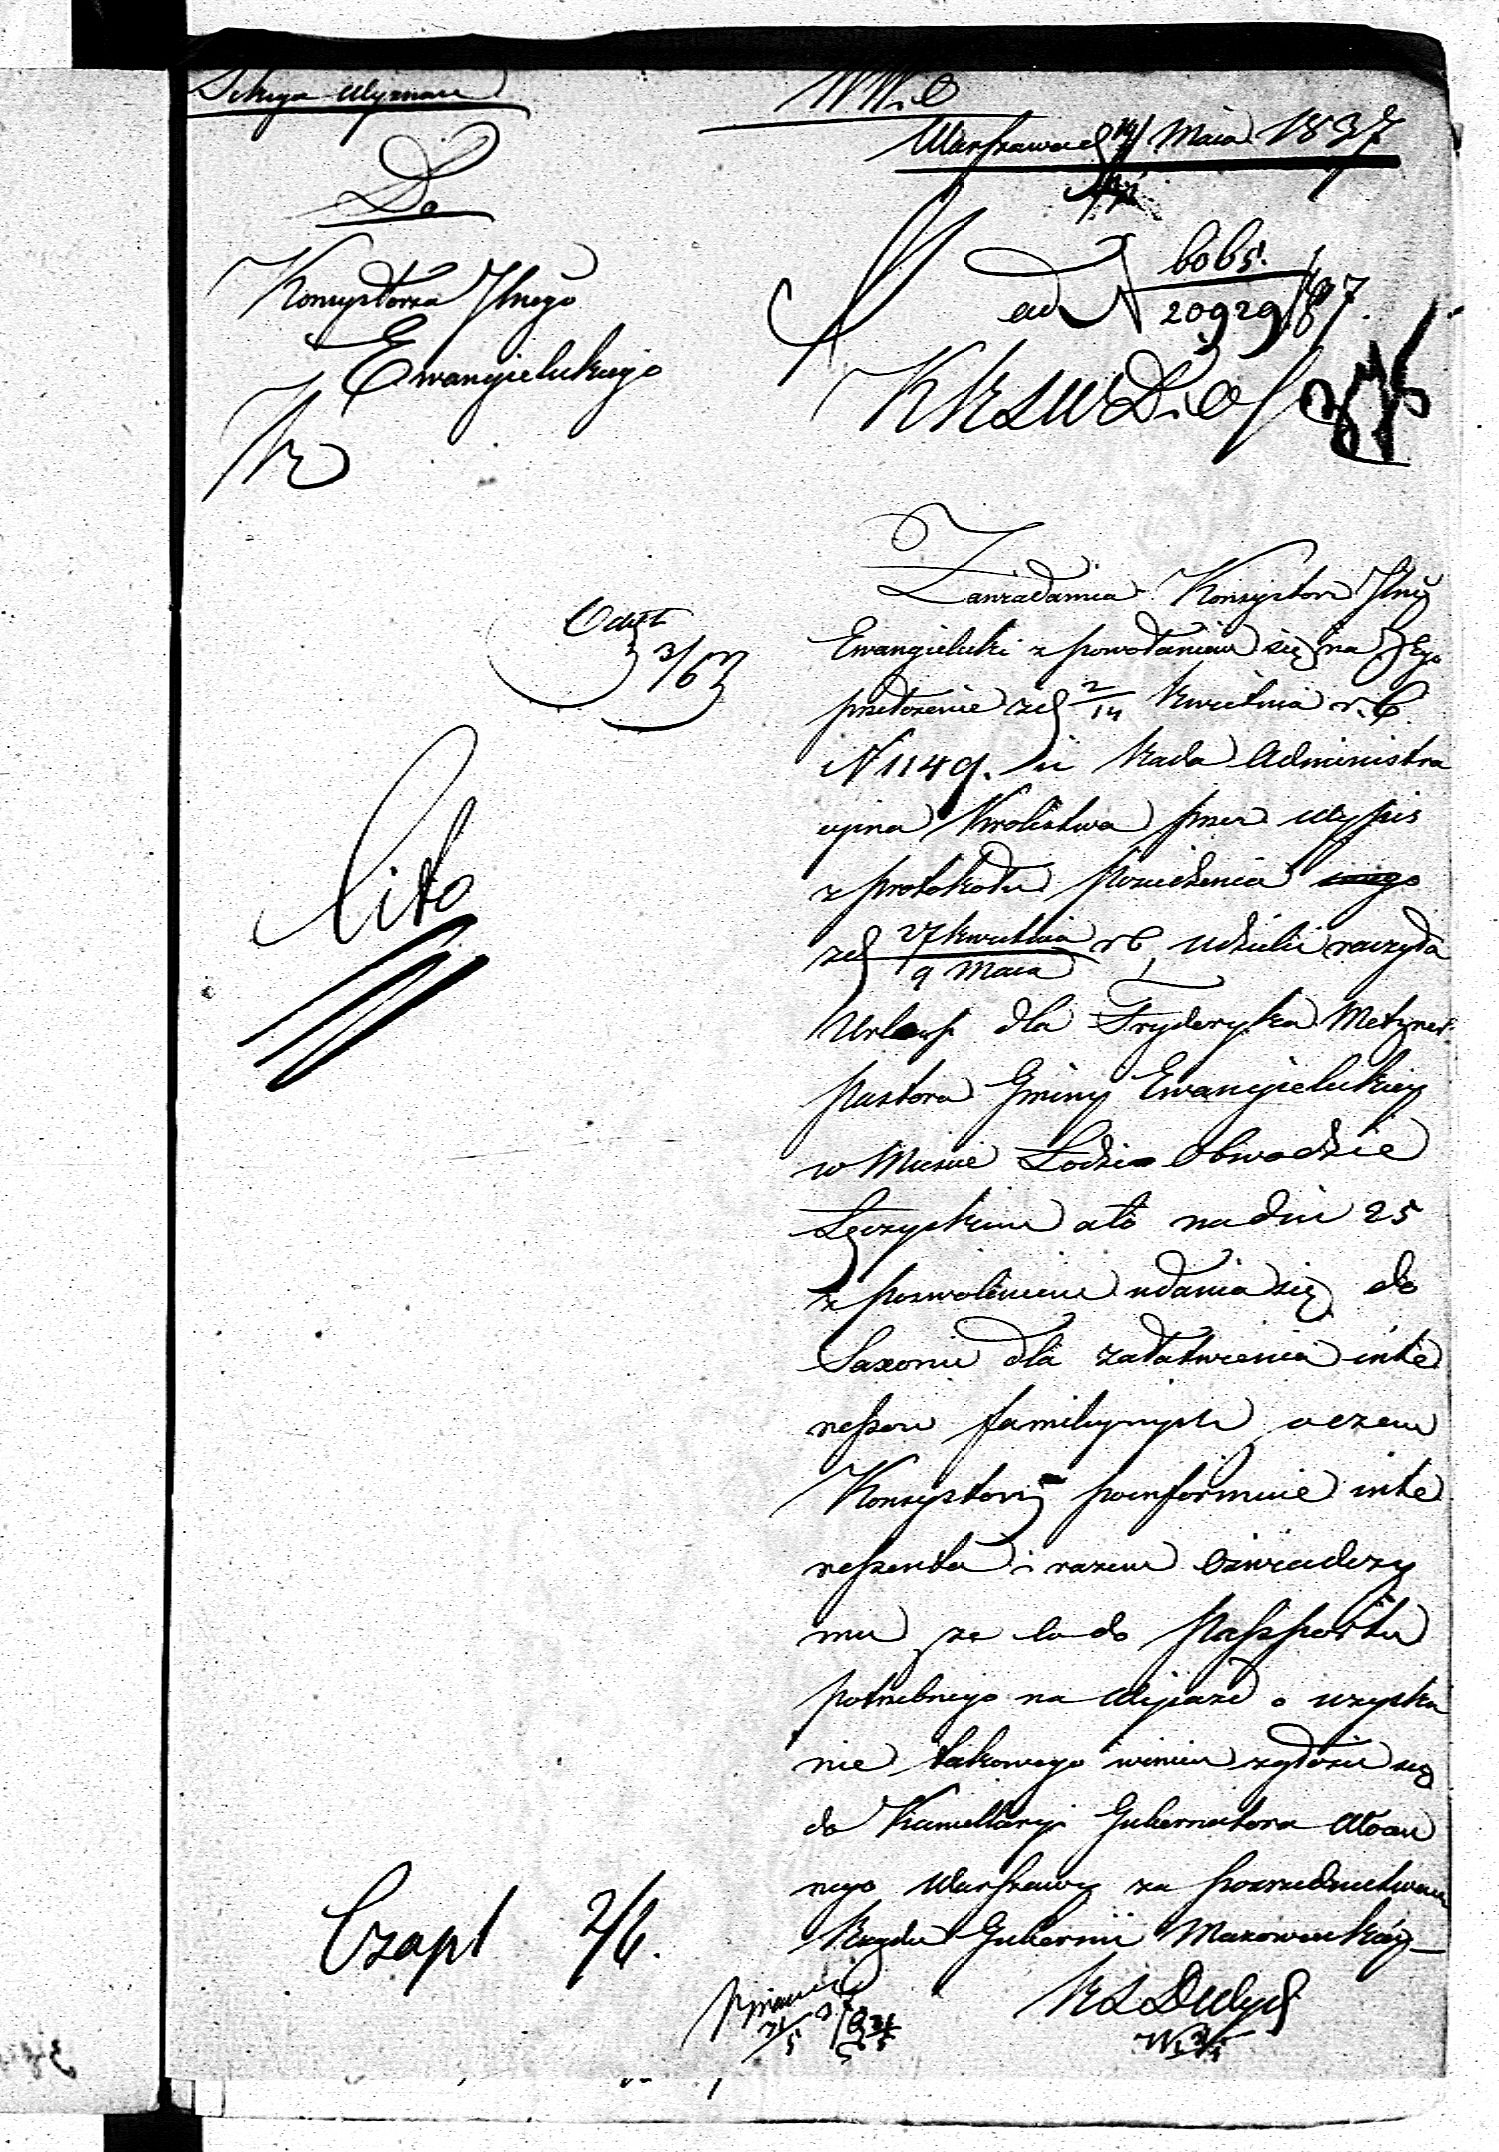 Sekcya Wyznań
Do
Konsystorza Jlnego
Ewangielickiego
Warszawa d 19/ Maia 1837
ad N 6065./20929/837.
KRSWDiOP
Zawiadamia Konsystorz Jlny
Ewangielicki z powołaniem się na Jego
przełożenie z d 2/14 Kwietnia r. b.
N 1149. iż Rada Administra
cyjna Królestwa przez wypis
z protokołu posiedzenia
z d 27 Kwietnia/9 Maia r b, udzielić raczyła
Urlop dla Fryderyka Metzner
Pastora Gminy Ewangielickiey
w Mieście Łodzi Obwodzie
Łęczyckim a to na dni 25
z pozwoleniem udania się do
Saxonii dla załatwienia inte
ressow familijnych o czem
Konsystorz poinformuie inte
ressenta i razem oświadczy
mu że co do Passportu
potrzebnego na Wyjazd o uzyska
nie takowego winien zgłosić się
do Kancellaryi Gubernatora Woien
nego Warszawy za pośrednictwem
Rządu Gubernii Mazowieckiéy
Odczt 3/6
Cito
Czapl 2/6.
31/5